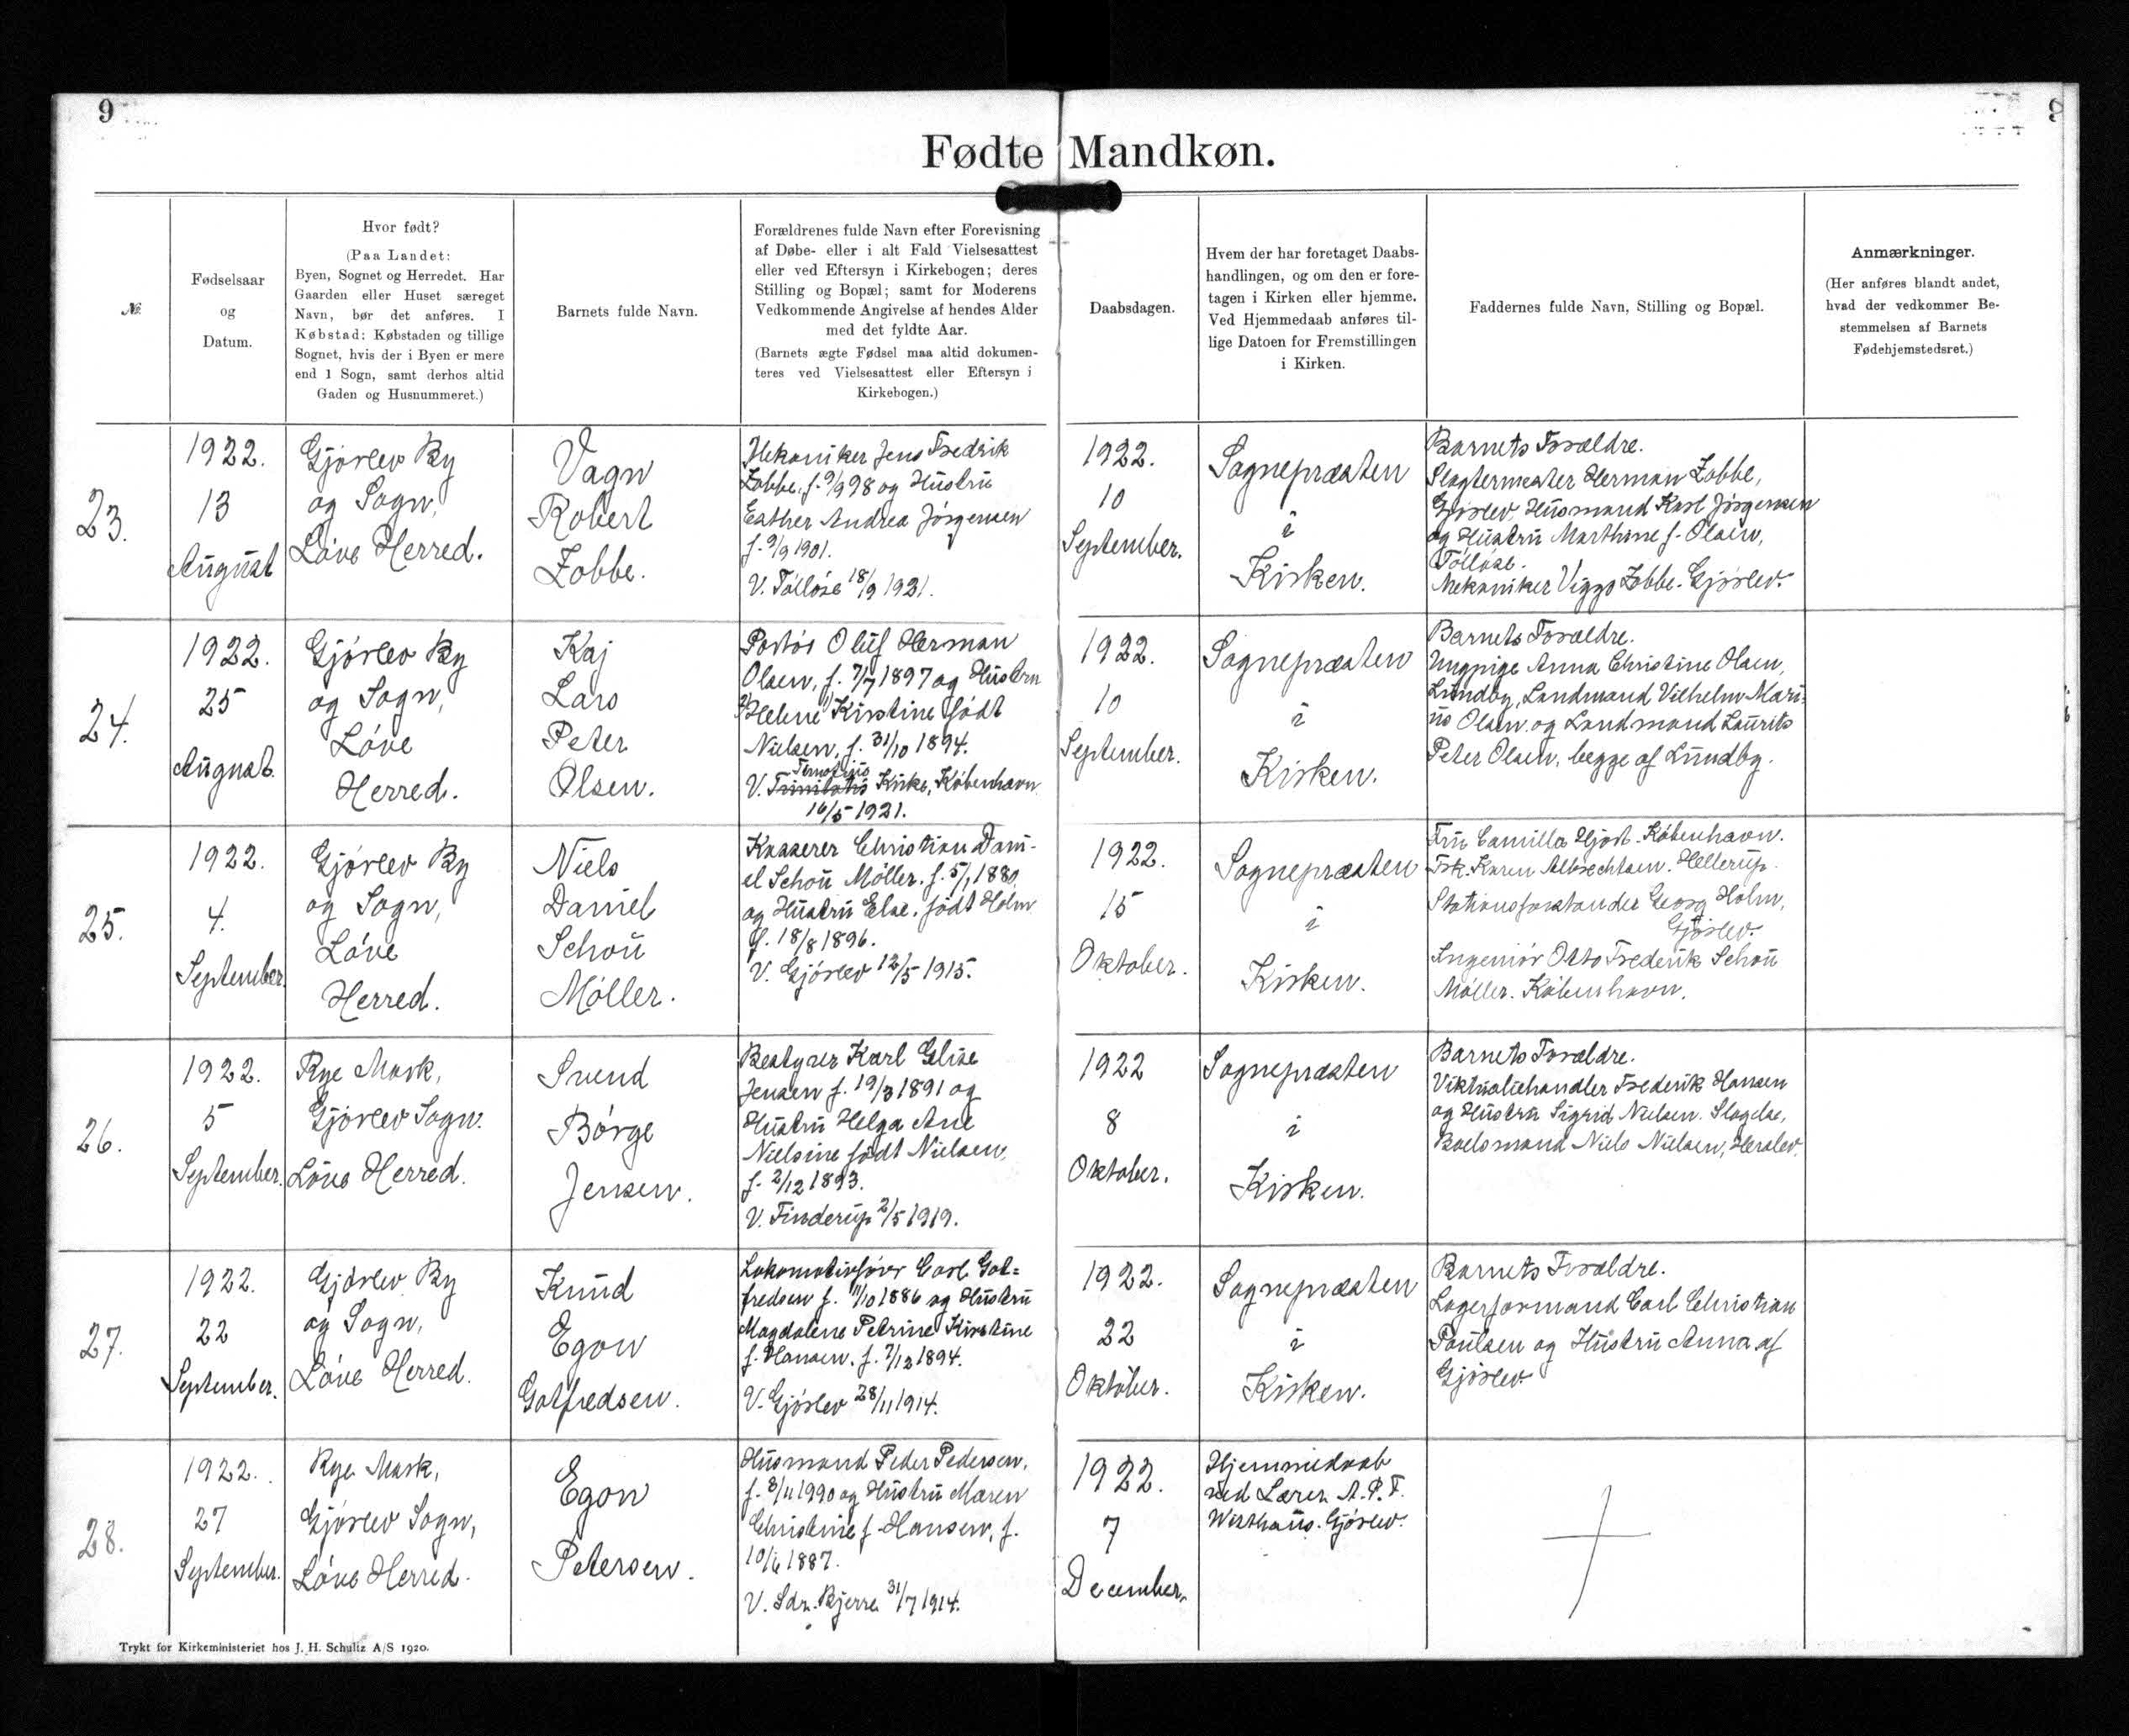 9
9
Fødte Mandkøn.
№
Fødselsaar
og
Datum.
Hvor født?
(Paa Landet:
Byen, Sognet og Herredet. Har
Gaarden eller Huset særeget
Navn, bør det anføres. I
Købstad: Købstaden og tillige
Sognet, hvis der i Byen er mere
end 1 Sogn, samt derhos altid
Gaden og Husnummeret.)
Barnets fulde Navn.
Forældrenes fulde Navn efter Forevisning
af Døbe- eller i alt Fald Vielsesattest
eller ved Eftersyn i Kirkebogen; deres
Stilling og Bopæl; samt for Moderens
Vedkommende Angivelse af hendes Alder
med det fyldte Aar.
(Barnets ægte Fødsel maa altid dokumen-
teres ved Vielsesattest eller Eftersyn i
Kirkebogen.)
Daabsdagen.
Hvem der har foretaget Daabs-
handlingen, og om den er fore-
tagen i Kirken eller hjemme.
Ved Hjemmedaab anføres til-
lige Datoen for Fremstillingen
i Kirken.
Faddernes fulde Navn, Stilling og Bopæl.
Anmærkninger.
(Her anføres blandt andet,
hvad der vedkommer Be-
stemmelsen af Barnets
Fødehjemstedsret.)
23.
1922.
13
August
Gjørlev By
og Sogn,
Løve Herred.
Vagn
Robert
Zobbe.
Mekaniker Jens Fredrik
Zobbe, f. 9/9 98 og Hustru
Esther Andrea Jørgensen
f. 9/9 1901.
V. Tølløse 18/9 1921.
1922.
10
September.
Sognepræsten
i
Kirken.
Barnets Forældre.
Slagtermester Herman Zobbe,
Gjørlev, Husmand Karl Jørgensen
og Hustru Marthine f. Olsen,
Tølløse.
Mekaniker Viggo Zobbe. Gjørlev.
24.
1922.
25
August.
Gjørlev By
og Sogn,
Løve
Herred.
Kaj
Lars
Peter
Olsen.
Portør Oluf Herman
Olsen, f. 7/7 1897 og Hustru
Helene Kirstine født
Nielsen, f. 31/10 1894.
Timotheus
V. Trinitatis Kirke, København
16/5 1921.
1922.
10
September.
Sognepræsten
i
Kirken.
Barnets Forældre.
Ungpige Anna Christine Olsen,
Lundby, Landmand Vilhelm Mari-
us Olsen og Landmand Laurits
Peter Olsen, begge af Lundby.
25.
1922.
4.
September.
Gjørlev By
og Sogn,
Løve
Herred.
Niels
Daniel
Schou
Møller.
Kasserer Christian Dani-
el Schou Møller. f. 5/1 1880
og Hustru Else, født Holm
f. 18/8 1896.
V. Gjørlev 12/5 1915.
1922.
15
Oktober.
Sognepræsten
i
Kirken.
Fru Camilla Hjort. København.
Frk. Karen Albrechtsen. Hellerup.
Stationsforstander Georg Holm,
Gjørlev.
Ingeniør Otto Frederik Schou
Møller. København.
26.
1922.
5
September.
Rye Mark,
Gjørlev Sogn.
Løve Herred.
Svend
Børge
Jensen.
Bestyrer Karl Elise
Jensen f. 19/3 1891 og
Hustru Helga Ane
Nielsine født Nielsen,
f. 2/12 1893.
V. Finderup 2/5 1919.
1922
8
Oktober.
Sognepræsten
i
Kirken.
Barnets Forældre.
Viktualiehandler Frederik Hansen
og Hustru Sigrid Nielsen. Slagelse,
Boelsmand Niels Nielsen, Herslev.
27.
1922.
22
September.
Gjørlev By
og Sogn,
Løve Herred.
Knud
Egon
Gotfredsen.
Lokomotivfører Carl Got=
fredsen f. 11/10 1886 og Hustru
Magdalene Petrine Kirstine
f. Hansen. f. 7/12 1894.
V. Gjørlev 28/11 1914.
1922.
22
Oktober.
Sognepræsten
i
Kirken.
Barnets Forældre.
Lagerformand Carl Christian
Poulsen og Hustru Anna af
Gjørlev
28.
1922.
27
September.
Rye Mark,
Gjørlev Sogn,
Løve Herred.
Egon
Petersen.
Husmand Peder Pedersen,
f. 8/11 1990 og Hustru Maren
Christine f. Hansen, f.
10/6 1887.
V. Sdr. Bjerre 31/7 1914.
1922.
7
December.
Hjemmedaab
ved Lærer A. P. F.
Westhaus. Gjørlev.
Trykt for Kirkeministeriet hos J. H. Schultz A/S 1920.